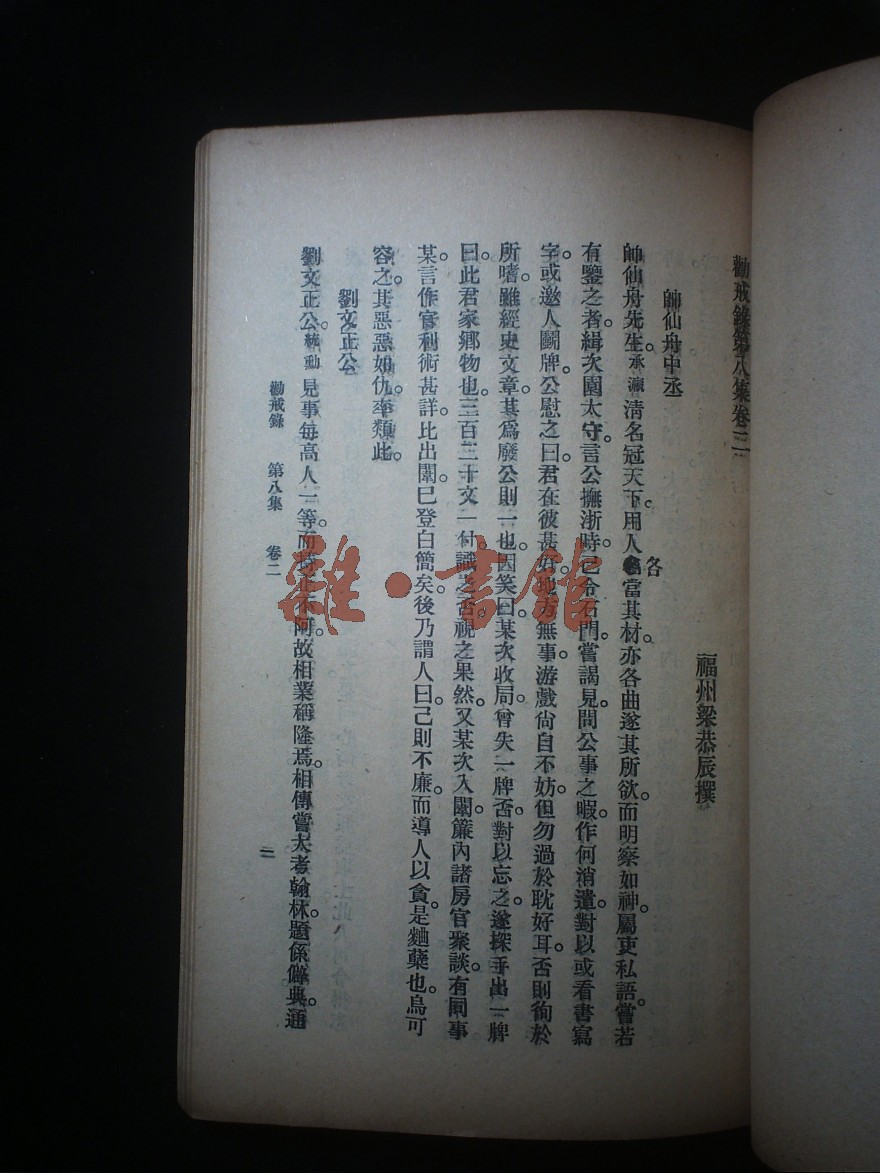 勸戒錄第八集卷二
福州梁恭辰撰
帥仙舟中丞
帥仙舟先生。承瀛清名冠天下。用人各當其材。亦各曲遂其所欲。而明察如神。屬吏私語。嘗若
有鑒之者。緝次園太守。言公撫浙時。已令石門。嘗謁見。問公事之暇。作何消遣。對以或看書寫
字。或邀人鬭牌。公慰之曰。君在彼甚好。地方無事。游戲尙自不妨。但勿過於耽好耳。否則徇於
所嗜。雖經史文章。其爲廢公則一也。因笑曰。某次收局。曾失一牌否。對以忘之。遂探手出一牌
曰。此君家鄉物也。三百三十文一付。識之否。視之果然。又某次入闈。簾內諸房官聚談。有同事
某。言作官利術甚詳。比出闈。已登白簡矣。後乃謂人曰。己則不廉。而導人以貪。是麯櫱也。烏可
容之。其惡惡如仇。率類此。
劉文正公
劉文正公。統勳見事每高人一等。而持正不阿。故相業稱隆焉。相傳嘗大考翰林。題係僻典。通
勸戒錄 第八集 卷二
二
雜·書館